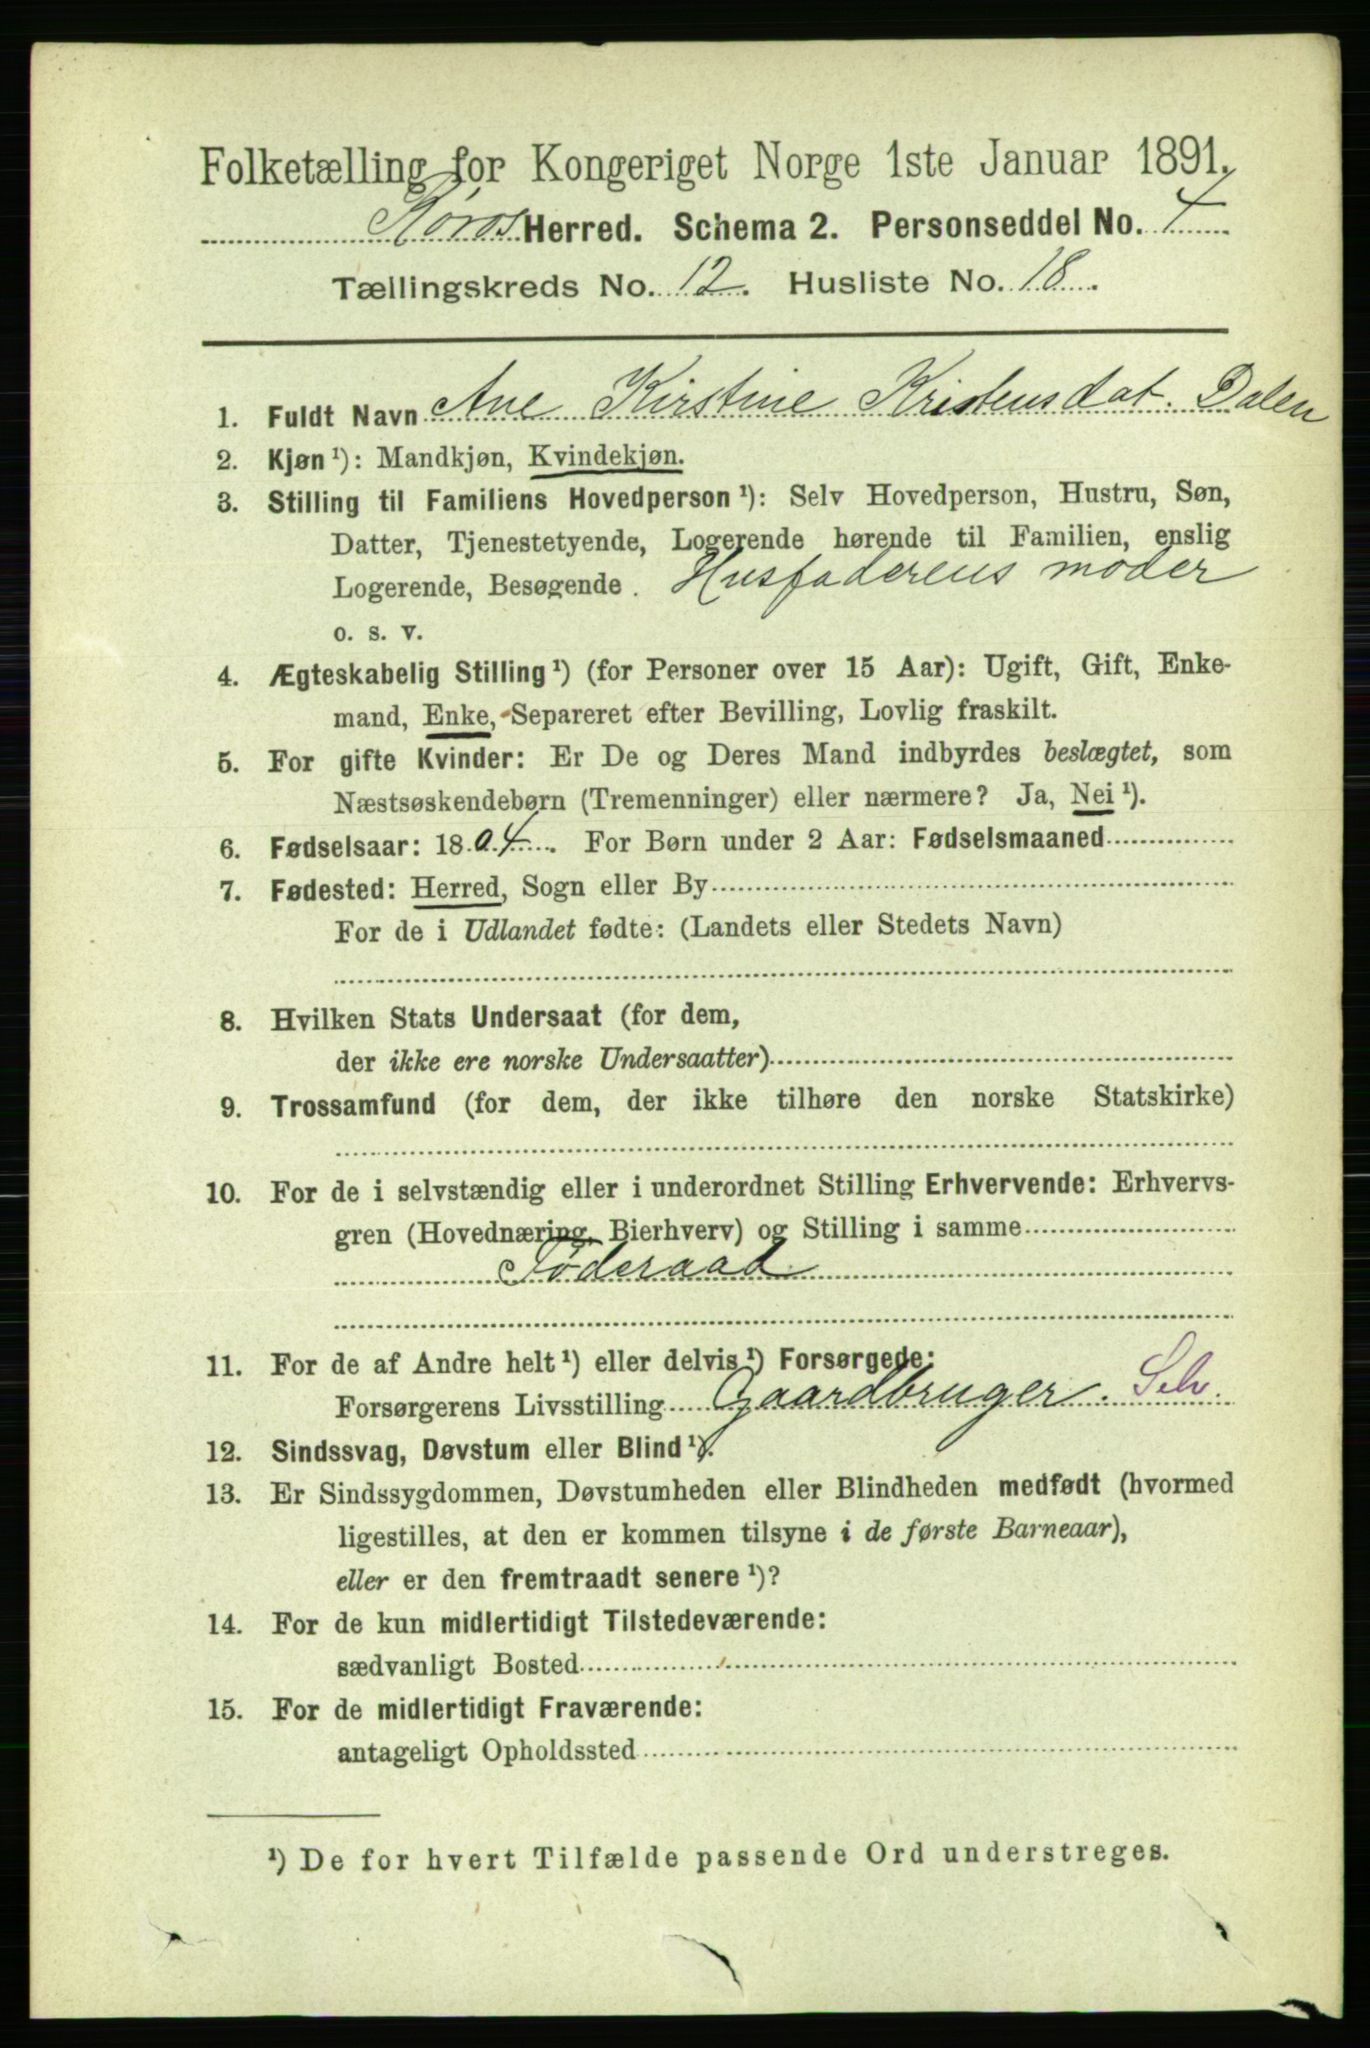 Folketælling for Kongeriget Norge 1ste Januar 1891.
Røros Herred. Schema 2. Personseddel No. 4
Tællingskreds No. 12. Husliste No. 18.
1. Fuldt Navn Ane Kirstine Kristensdat. Dalen
2. Kjøn ¹): Mandkjøn, Kvindekjøn.
3. Stilling til Familiens Hovedperson ¹): Selv Hovedperson, Hustru, Søn,
Datter, Tjenestetyende, Logerende hørende til Familien, enslig
Logerende, Besøgende. Husfaderens moder
o. s. v.
4. Ægteskabelig Stilling ¹) (for Personer over 15 Aar): Ugift, Gift, Enke-
mand, Enke, Separeret efter Bevilling, Lovlig fraskilt.
5. For gifte Kvinder: Er De og Deres Mand indbyrdes beslægtet, som
Næstsøskendebørn (Tremenninger) eller nærmere? Ja, Nei ¹).
6. Fødselsaar: 1804. For Børn under 2 Aar: Fødselsmaaned
7. Fødested: Herred, Sogn eller By
For de i Udlandet fødte: (Landets eller Stedets Navn)
8. Hvilken Stats Undersaat (for dem,
der ikke ere norske Undersaatter)
9. Trossamfund (for dem, der ikke tilhøre den norske Statskirke)
10. For de i selvstændig eller i underordnet Stilling Erhvervende: Erhvervs-
gren (Hovednæring, Bierhverv) og Stilling i samme
Føderaad
11. For de af Andre helt ¹) eller delvis ¹) Forsørgede:
Forsørgerens Livsstilling Gaardbruger. Selv.
12. Sindssvag, Døvstum eller Blind ¹).
13. Er Sindssygdommen, Døvstumheden eller Blindheden medfødt (hvormed
ligestilles, at den er kommen tilsyne i de første Barneaar),
eller er den fremtraadt senere ¹)?
14. For de kun midlertidigt Tilstedeværende:
sædvanligt Bosted
15. For de midlertidigt Fraværende:
antageligt Opholdssted
¹) De for hvert Tilfælde passende Ord understreges.